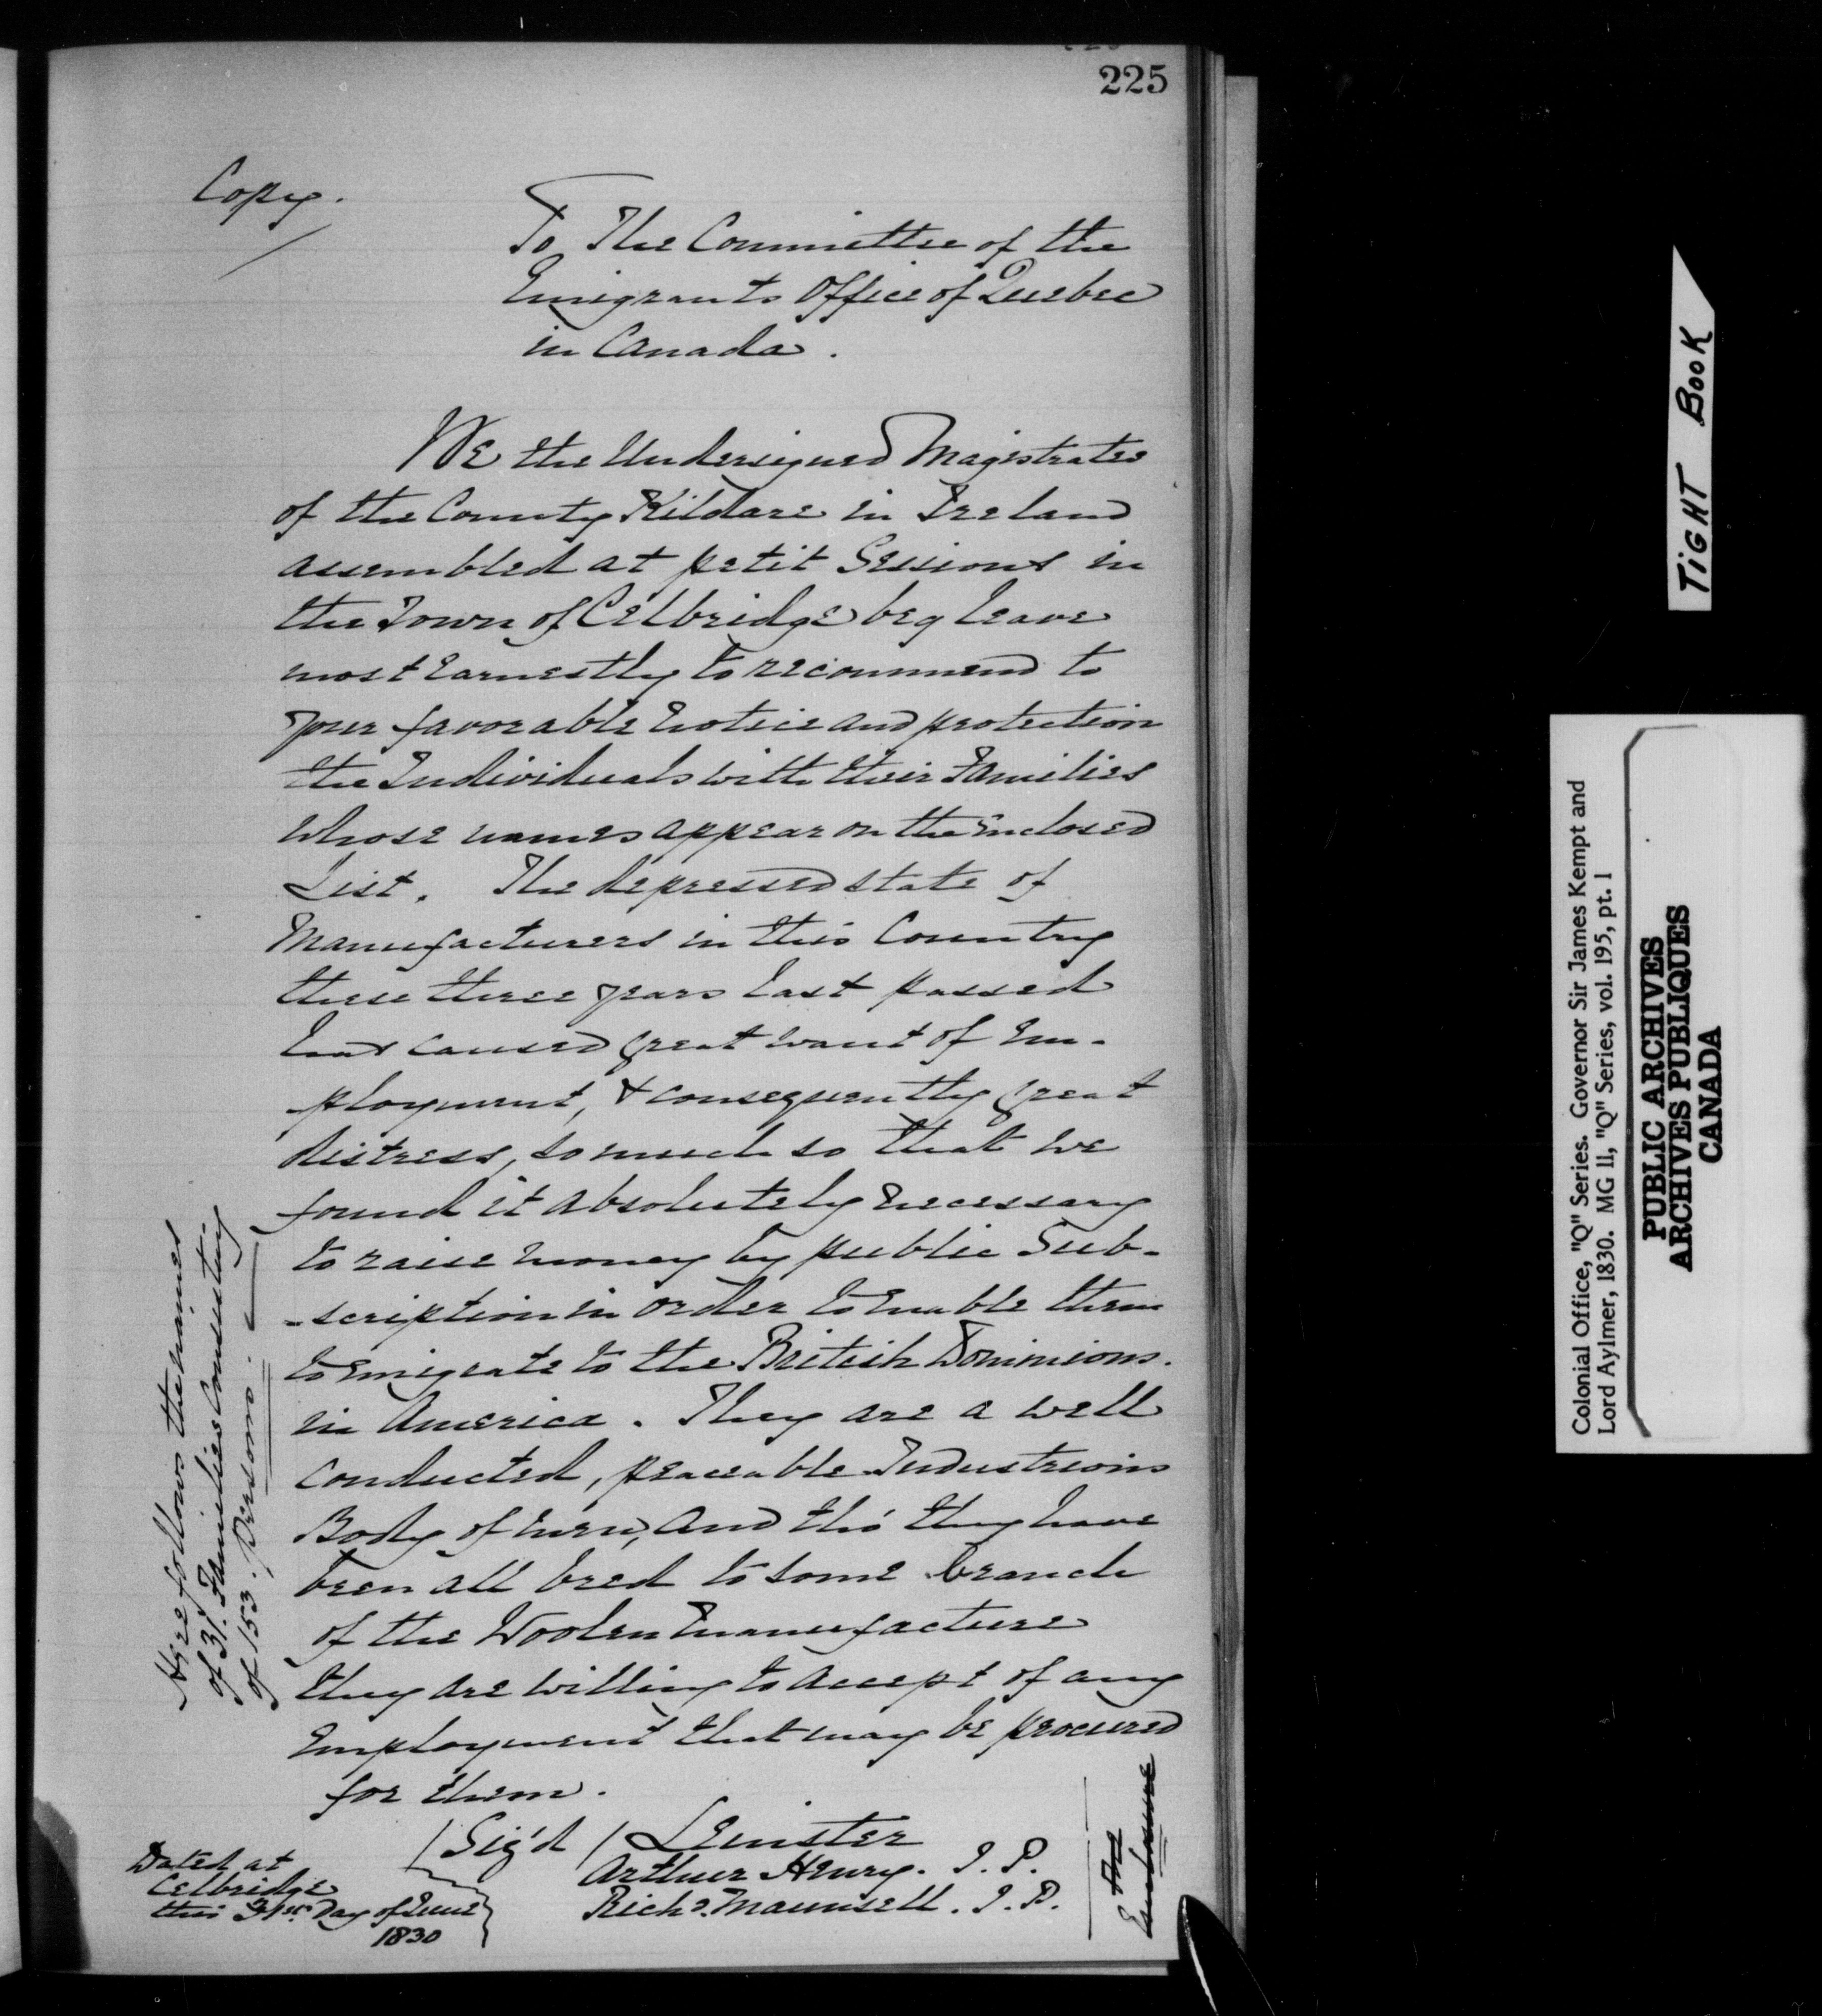 225
Copy.
To The Committee of the
Emigrants Office of Quebec
in Canada.
We the Undersigned Magistrates
of the County Kildare in Ireland
assembled at petit Sessions in
the Town of Celbridge beg leave
most earnestly to recommend to
your favorable notice and protection
the Individuals with their Families
whose names appear on the Enclosed
List. The depressed state of
Manufacturers in this Country
these three years last passed
has caused great want of Em-
ployment, & consequently great
distress, so much so that we
found it absolutely necessary
to raise money by public Sub-
-scription in order to Enable them
to Emigrate to the British Dominions.
in America. They are a well
conducted, peaceable Industrious
Body of men, and tho' they have
been all bred to some branch
of the Woolen Manufacture
they are willing to accept of any
Employment that may be procured
for them.
(Sig'd) Leinster
Arthur Henry. J. P.
Richd. Maunsell. J. P.
Dated at
Celbridge
this 21st Day of June
1830
Here follows the names
of 31. Families Consisting
of 153. Persons.
Enclosure
TIGHT BOOK
Colonial Office, "Q" Series. Governor Sir James Kempt and
Lord Aylmer, 1830. MG 11, "Q" Series, vol. 195, pt. 1
PUBLIC ARCHIVES
ARCHIVES PUBLIQUES
CANADA